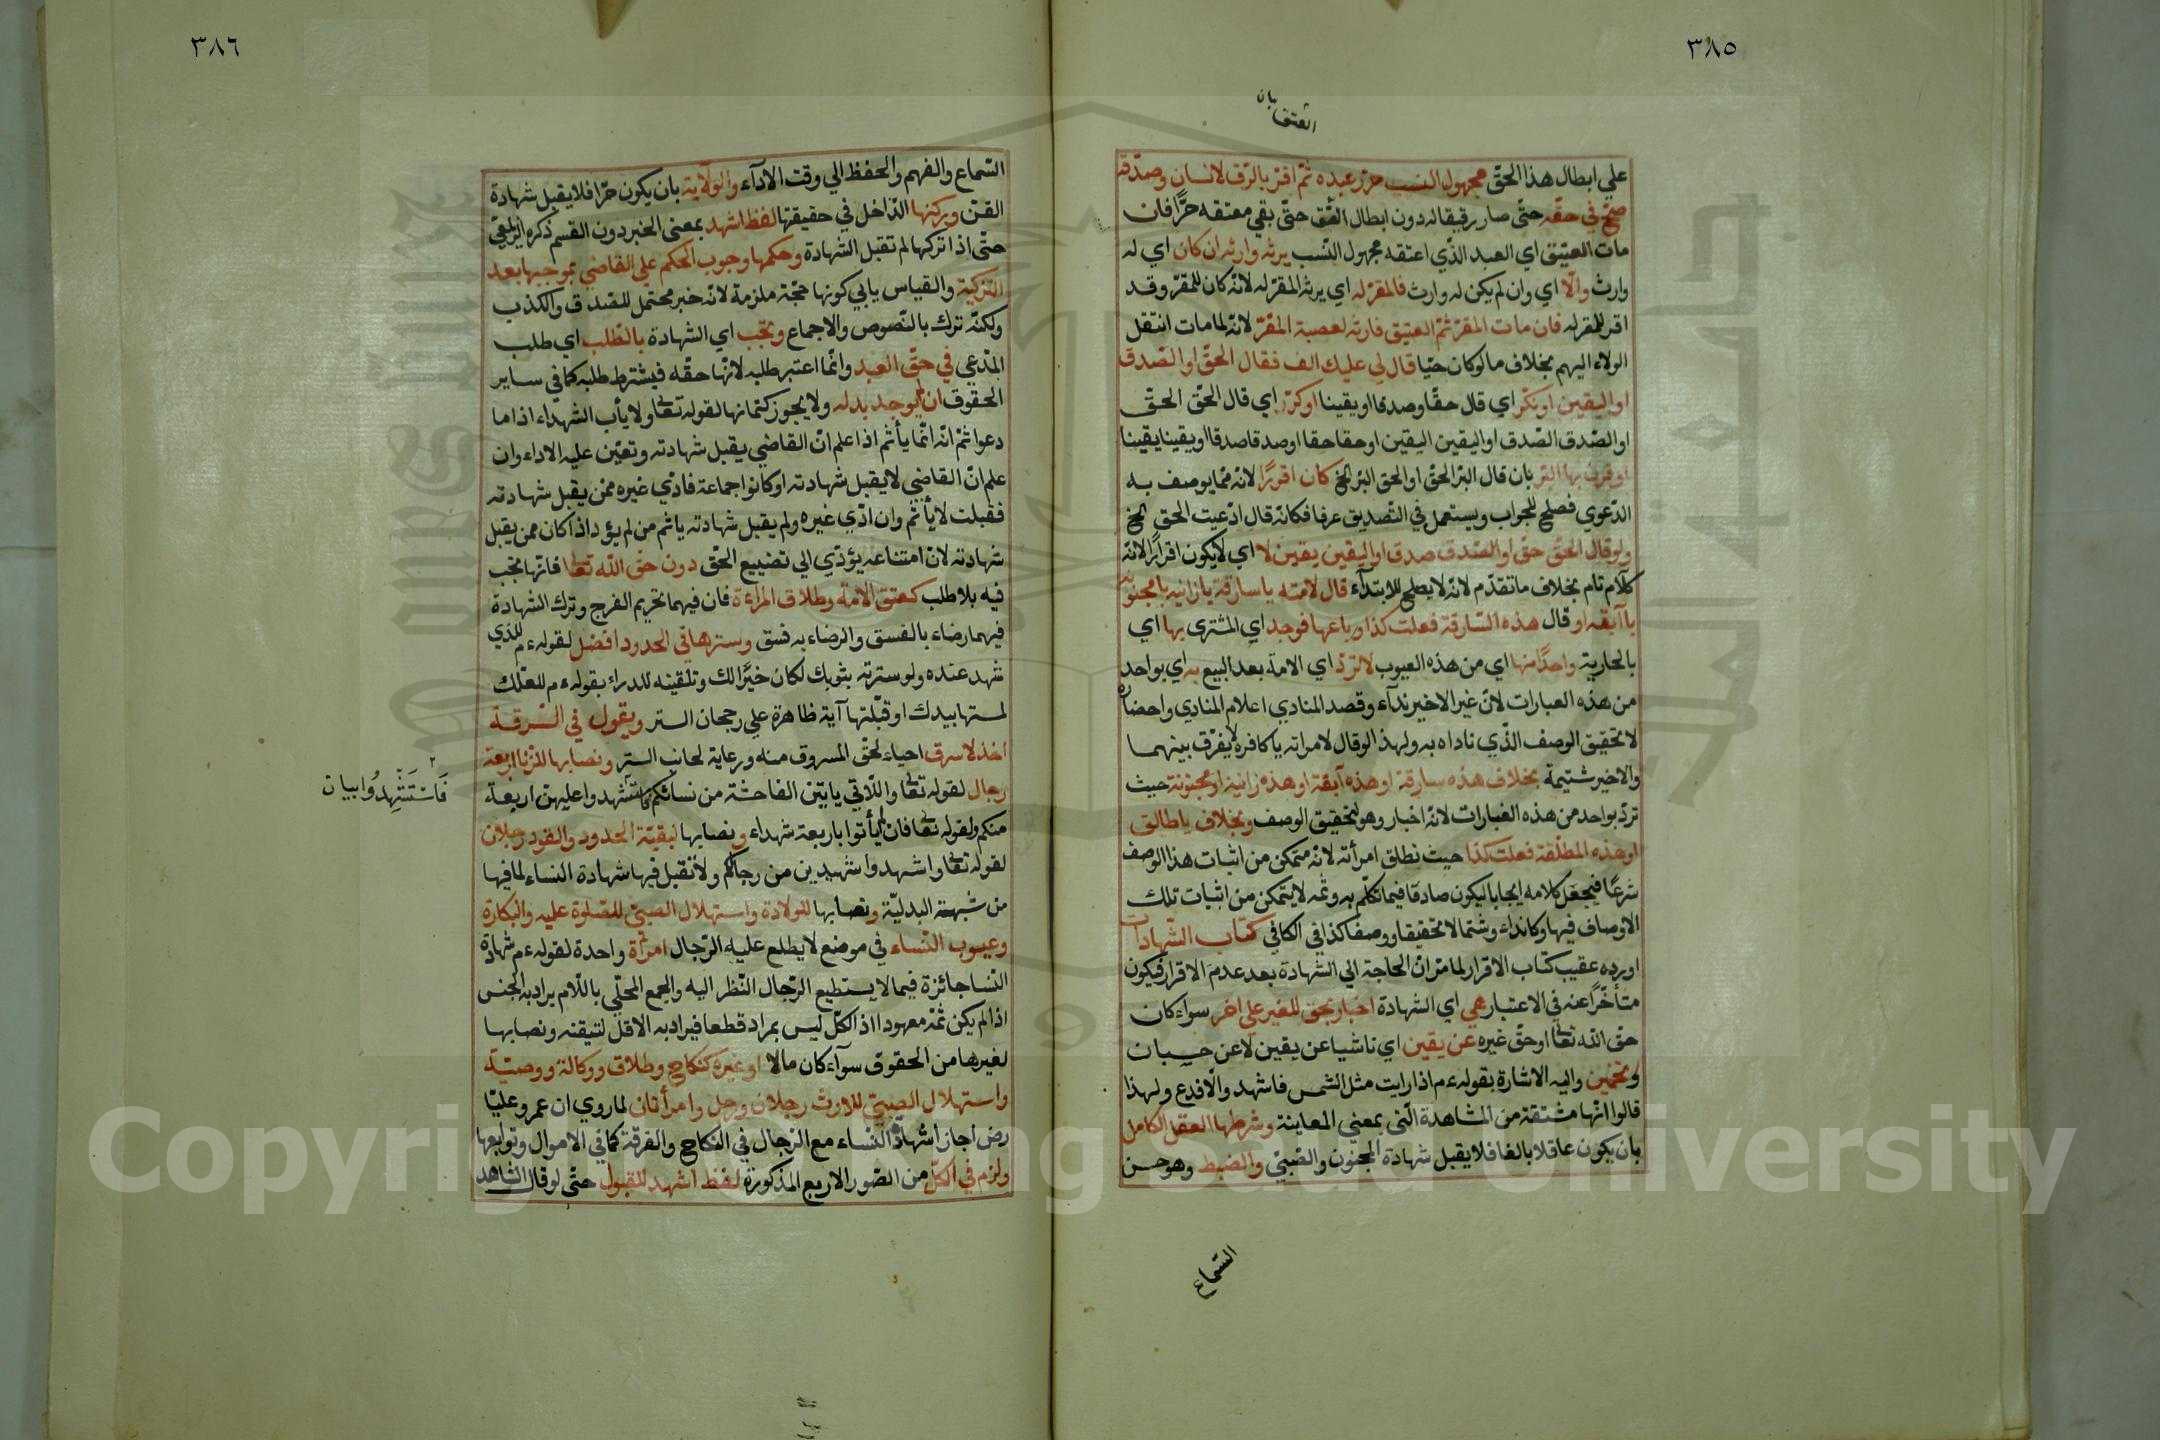 ٣٨٥
العتق بان
علي ابطال هذا الحقّ مجهول النسب حرّر عبده ثمّ اقرّ بالرّق لانسان وصدّقه
صحّ في حقّه حتّى صار رقيقا له دون ابطال العتق حتّى بقي معتقه حرًّا فان
مات العتيق اي العبد الذّي اعتقه مجهول النّسب يرثه وارثه ان كان اي له
وارث والّا اي وان لم يكن له وارث فالمقرّ له اي يرثه المقرّ له لانّه كان للمقرّ وقد
اقر للمقرله فان مات المقرّ ثمّ العتيق فارثه لعصبة المقرّ لانّه لما مات انتقل
الولاء اليهم بخلاف ما لو كان حيّا قال لي عليك الف فقال الحقّ او الصّدق
او اليقين او نكّر اي قال حقّا وصدقا او يقينا او كرّر اي قال الحقّ الحقّ
او الصّدق الصّدق او اليقين اليقين او حقا حقا او صدقا صدقا او يقينا يقينا
او قرن بها البّر بان قال البرّ الحقّ او الحق البرّ الخ كان اقرارًا لانّه ممّا يوصف به
الدّعوي فصلح للجواب ويستعمل في التّصديق عرفا فكانّه قال ادّعيت الحق الخ
ولو قال الحقّ حقّ او الصّدق صدق او اليقين يقين لا اي لا يكون اقرارًا لانّه
كلام تام بخلاف ما تقدّم لانّه لا يصلح للابتدآء قال لامته يا سارقة يا زانيه يا مجنونه
يا آبقه او قال هذه السّارقة فعلت كذا وباعها فوجد اي المشترى بها اي
بالجارية واحدًا منها اي من هذه العيوب لا تردّ اي الامة بعد البيع به اي بواحد
من هذه العبارات لانّ غير الاخير ندآء وقصد المنادي اعلام المنادي واحضاره
لا تحقيق الوصف الذّي ناداه به ولهذا لو قال لامراته يا كافره لا يفرّق بينهما
والاخير شتيمة بخلاف هذه سارقة او هذه آبقة او هذه زانية او مجنونة حيث
تردّ بواحد من هذه العبارات لانّه اخبار وهو لتحقيق الوصف وبخلاف يا طالق
او هذه المطلّقة فعلت كذا حيث تطلق امرأته لانّه متمكن من اثبات هذا الوصف
شرعًا فيجعل كلامه ايجابا ليكون صادقا فيما تكلّم به وثمّه لا يتمكن من اثبات تلك
الاوصاف فيها وكان نداء وشتما لا تحقيقا ووصفا كذا في الكافي كتاب الشّهادات
اورده عقيب كتاب الاقرار لما مرّ انّ الحاجة الي الشهادة بعد عدم الاقرار فيكون
متأخّرًا عنه في الاعتبار هي اي الشهادة اخبار بحق للغير على اخر سوآء كان
حقّ اللّه تعالى او حقّ غيره عن يقين اي ناشيا عن يقين لا عن حسبان
وتخمين واليه الاشارة بقوله ءم اذا رايت مثل الشمس فاشهد والّا فدع ولهذا
قالوا انّها مشتقة من المشاهدة الّتي بمعني المعاينة وشرطها العقل الكامل
بان يكون عاقلا بالغا فلا يقبل شهادة المجنون والصّبيّ والضبط وهو حسن
السّماع
٣٨٦
السّماع والفهم والحفظ الي وقت الادآء والولاية بان يكون حرّا فلا يقبل شهادة
القنّ وركنها الدّاخل في حقيقتها لفظ اشهد بمعنى الخبر دون القسم ذكره الزيلعي
حتّى اذا تركها لم تقبل الشّهادة وحكمها وجوب الحكم علي القاضي بموجبها بعد
التزكية والقياس يابي كونها حجّة ملزمة لانّه خبر محتمل للصّدق والكذب
ولكنّه ترك بالنّصوص والاجماع وتجب اي الشهادة بالطّلب اي طلب
المدّعي في حقّ العبد وانّما اعتبر طلبه لانّها حقّه فيشترط طلبه كما في ساير
الحقوق ان لم يوجد بدله ولا يجوز كتمانها لقوله تعالى ولا يأب الشهداء اذا ما
دعوا ثمّ انّه انّما يأثم اذا علم انّ القاضي يقبل شهادته وتعيّن عليه الاداء وان
علم انّ القاضي لا يقبل شهادته او كانوا جماعة فادّي غيره ممّن يقبل شهادته
فقبلت لا يأثم وان ادّي غيره ولم يقبل شهادته ياثم من لم يؤد اذا كان ممن يقبل
شهادته لانّ امتناعه يؤدّي الي تضييع الحقّ دون حقّ اللّه تعالى فانّها تجب
فيه بلا طلب كعتق الامة وطلاق المراءة فان فيهما تحريم الفرج وترك الشهادة
فيهما رضاء بالفسق والرضاء به فسق وسترها في الحدود افضل لقوله ءم للذي
شهد عنده ولو سترته بثوبك لكان خيرًا لك وتلقينه للدراء بقوله ءم لعلك
لمستها بيدك او قبّلتها آية ظاهرة علي رجحان الستر ويقول في السّرقة
اخذ لا سرق احياء لحقّ المسروق منه ورعاية لجانب الستر ونصابها للزّنا اربعة
رجال لقوله تعالى واللّاتي ياتين الفاحشة من نسائكم فاستشهدوا عليهنّ اربعة
منكم ولقوله تعالى فان لم يأتوا باربعة شهداء ونصابها لبقيّة الحدود والقود رجلان
لقوله تعالى واشهدوا شهيدين من رجالكم ولا تقبل فيها شهادة النساء لما فيها
من شبهة البدليّة ونصابها للولادة واستهلال الصبيّ للصّلوة عليه والبكارة
وعيوب النّساء في موضع لا يطلع عليه الرّجال امرأة واحدة لقوله ءم شهادة
النّسا جائزة فيما لا يستطيع الرّجال النّظر اليه والجمع المحلّي باللّام يراد به الجنس
اذا لم يكن ثمّة معهودا اذ الكلّ ليس بمراد قطعا فيراد به الاقل لتيقنه ونصابها
لغيرها من الحقوق سوآء كان مالا او غيره كنكاح وطلاق ووكالة ووصيّة
واستهلال الصبيّ للارث رجلان او رجل وامرأتان لما روي ان عمر وعليّا
رض اجازا شهادة النّساء مع الرّجال في النّكاح والفرقة كما في الاموال وتوابعها
ولزم في الكلّ من الصّور الاربع المذكورة لفظ اشهد للقبول حتّى لو قال الشّاهد
فَاسْتَشْهِدُوا بيان